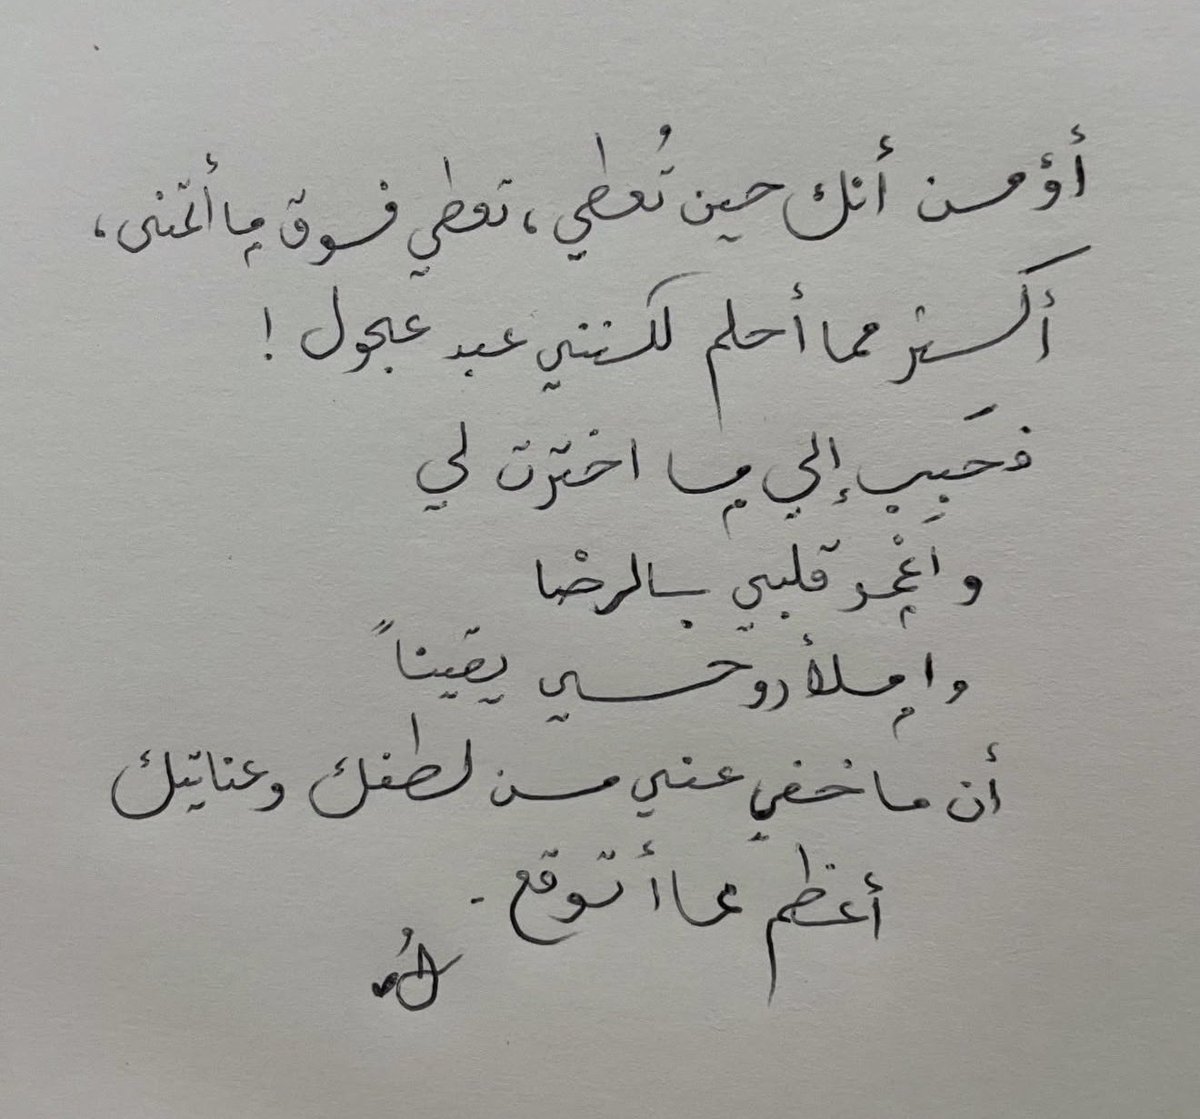 أؤمن أنك حين تُعطي، تعطي فوق ما أتمنى،
أكثر مما أحلم لكنني عبد عجول !
فحَبِب إلي ما اخترت لي
واَغْمر قلبي بالرضا
واملأ روحي يقيناً
أن ما خفي عني من لطفك وعنايتك
أعظم مما أتوقع .